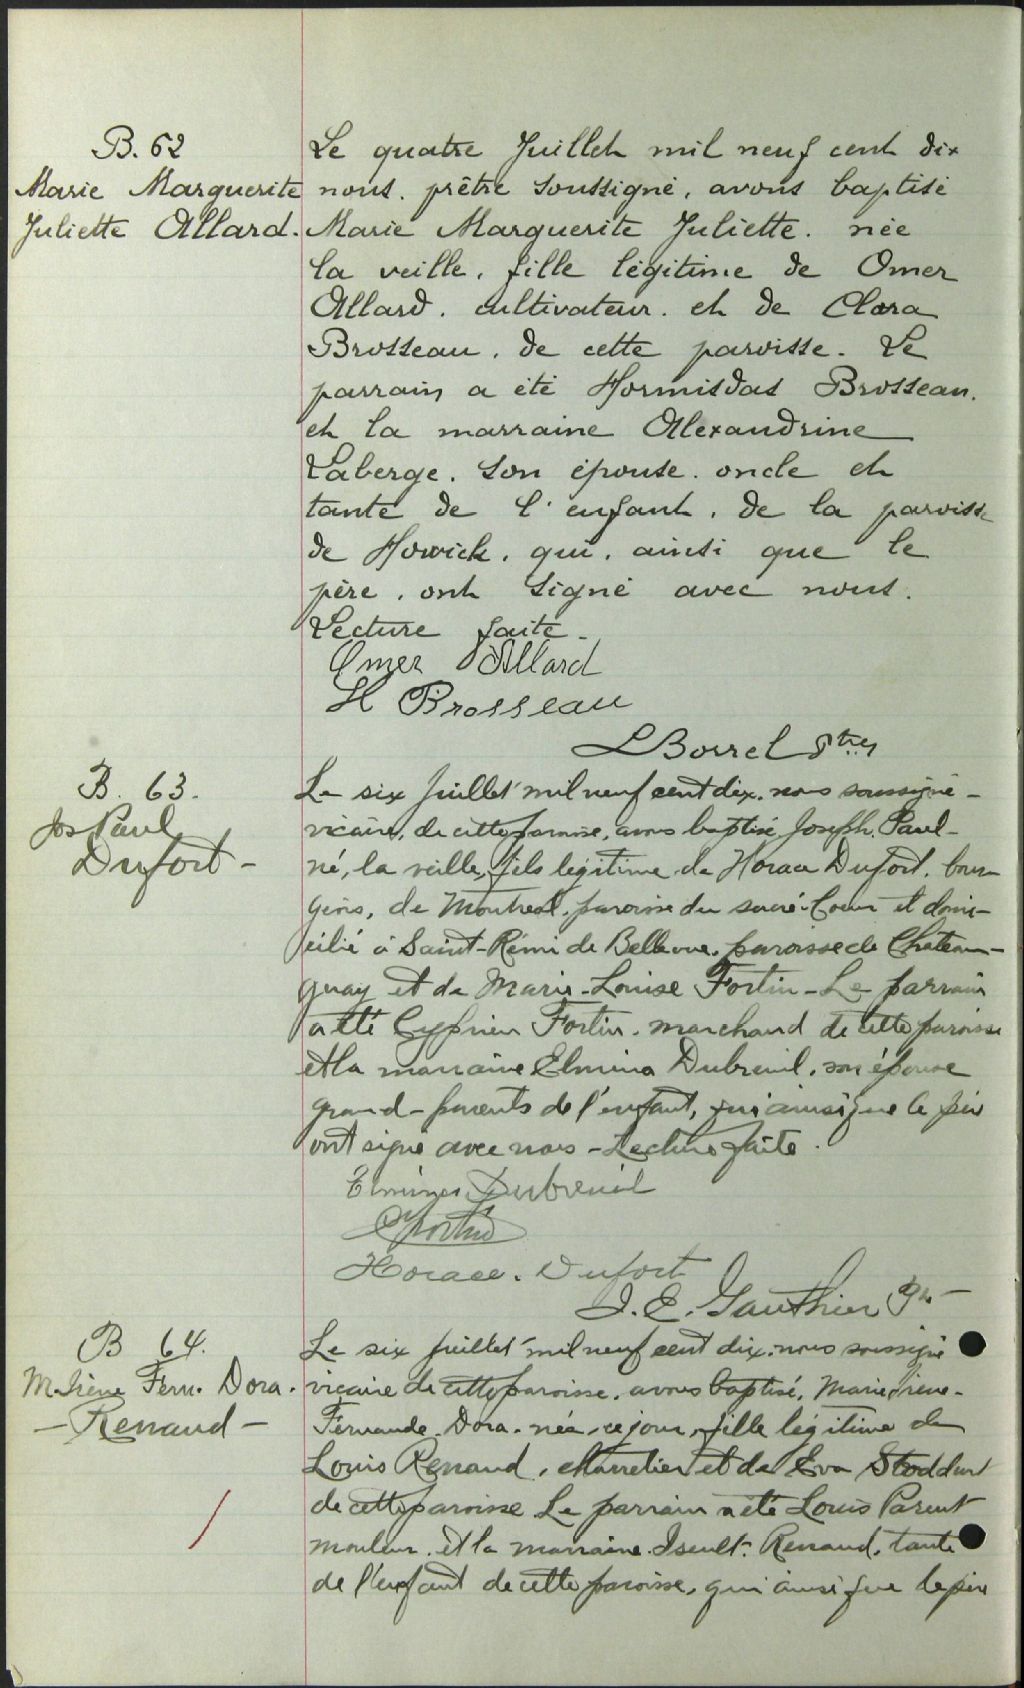 B. 62
Marie Marguerite
Juliette Allard.
Le quatre Juillet mil neuf cent dix
nous. prêtre soussigné, avons baptisé
Marie Marguerite Juliette. née
la veille, fille légitime de Omer
Allard. cultivateur. et de Clara
Brosseau, de cette paroisse. Le
parrain a été Hormisdas Brosseau.
et la marraine Alexandrine
Laberge. son épouse. oncle et
tante de l'enfant, de la paroisse
de Howick, qui, ainsi que le
père, ont signé avec nous.
Lecture faite.
Omer Allard
H Brosseau
L Borrel ptre
B. 63.
Jos Paul
Dufort -
Le six Juillet mil neuf cent dix. nous soussigné -
vicaire, de cette paroisse, avons baptisé Joseph. Paul -
né, la veille, fils légitime de Horace Dufort. bour-
geois, de Montreal. paroisse du sacré-Coeur et domi-
cilié à Saint-Rémi de Bellevue. paroisse de Chateau-
guay et de Marie-Louise Fortin - Le parrain
a été Cyprien Fortin. marchand de cette paroisse
et la marraine Elmina Dubreuil. son épouse
grand-parents de l'enfant, qui ainsi que le père
ont signé avec nous - Lecture faite.
Elmina Dubreuil
C Fortin
Horace. Dufort
J. E. Gauthier Ptr
B 64.
M. Irène Fern. Dora.
- Renaud -
Le six Juillet mil neuf cent dix. nous soussigné
vicaire de cette paroisse. avons baptisé, Marie Irene -
Fernande. Dora. née, ce jour, fille légitime de
Louis Renaud, charretier et de Eva Stoddart
de cette paroisse Le parrain a été Louis Parent
mouleur. et la marraine. Iseult. Renaud, tante
de l'enfant de cette paroisse, qui ainsi que le père